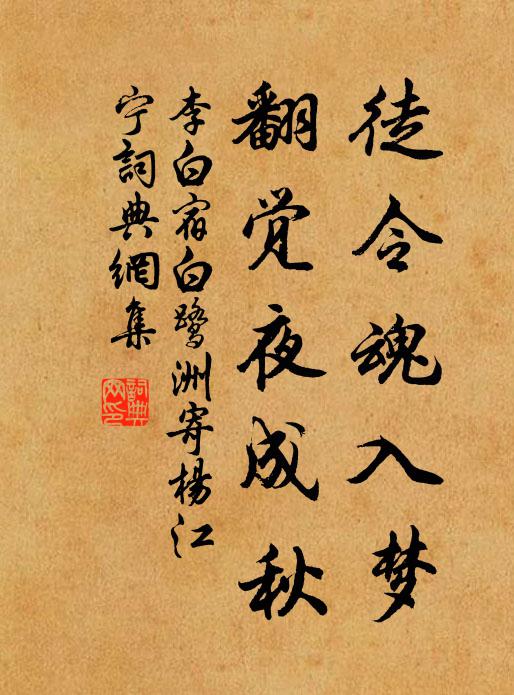 徒令魂入梦
翻觉夜成秋
李白宿白鹭洲寄楊江
宁詞典網集
詞典网印